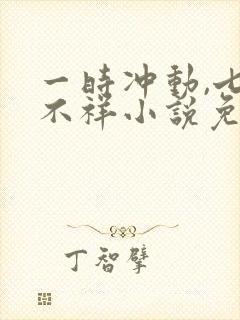 一時冲動,七
不祥小說免
丁智擘